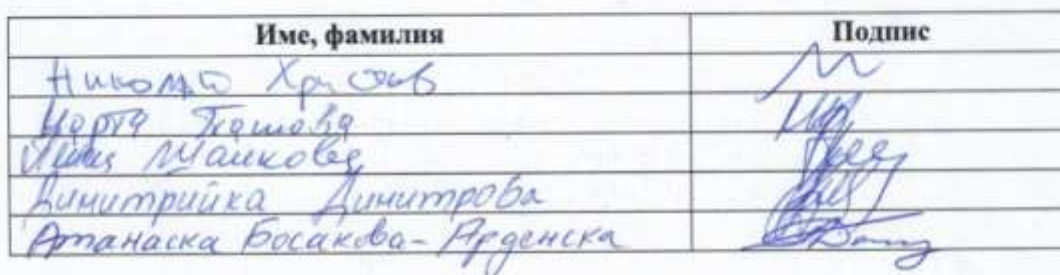 Име, фамилия Подпис
Николай Христов
Марта Ташева
Маикова
Димитрийка Димитрова
Атанаска Босакова-Арденска